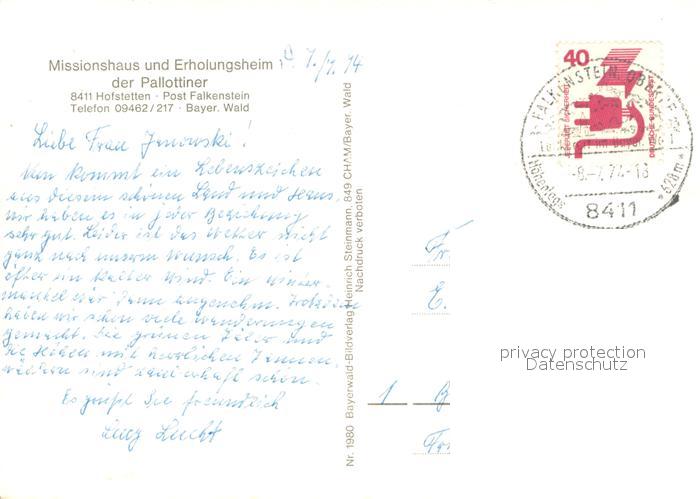 Missionshaus und Erholungsheim
der Pallottiner
8411 Hofstetten · Post Falkenstein
Telefon 09462/217 · Bayer. Wald
d. 7./7. 74
Liebe Frau
Nun kommt ein Lebenszeichen
aus diesem schönen Land und Haus,
wir haben es in jeder Beziehung
sehr gut. Leider ist das Wetter nicht
ganz nach unserm Wunsch. Es ist
öfter ein kalter Wind. Ein Winter-
mantel wär dann angenehm. Trotzdem
haben wir schon viele Wanderungen
gemacht. Die grünen Täler und
die Höhen mit herrlichen Tannen-
wäldern sind schön.
Es grüßt Sie freundlich
Nr. 1980 Bayerwald-Bildverlag Heinrich Steinmann, 849 CHAM/Bayer. Wald
Nachdruck verboten
40
DEUTSCHE BUNDESPOST
FALKENSTEIN, OBERPF
-8.-7.74-18
Höhenlage
628m
8411
Fr
E.
1 B
privacy protection
Datenschutz